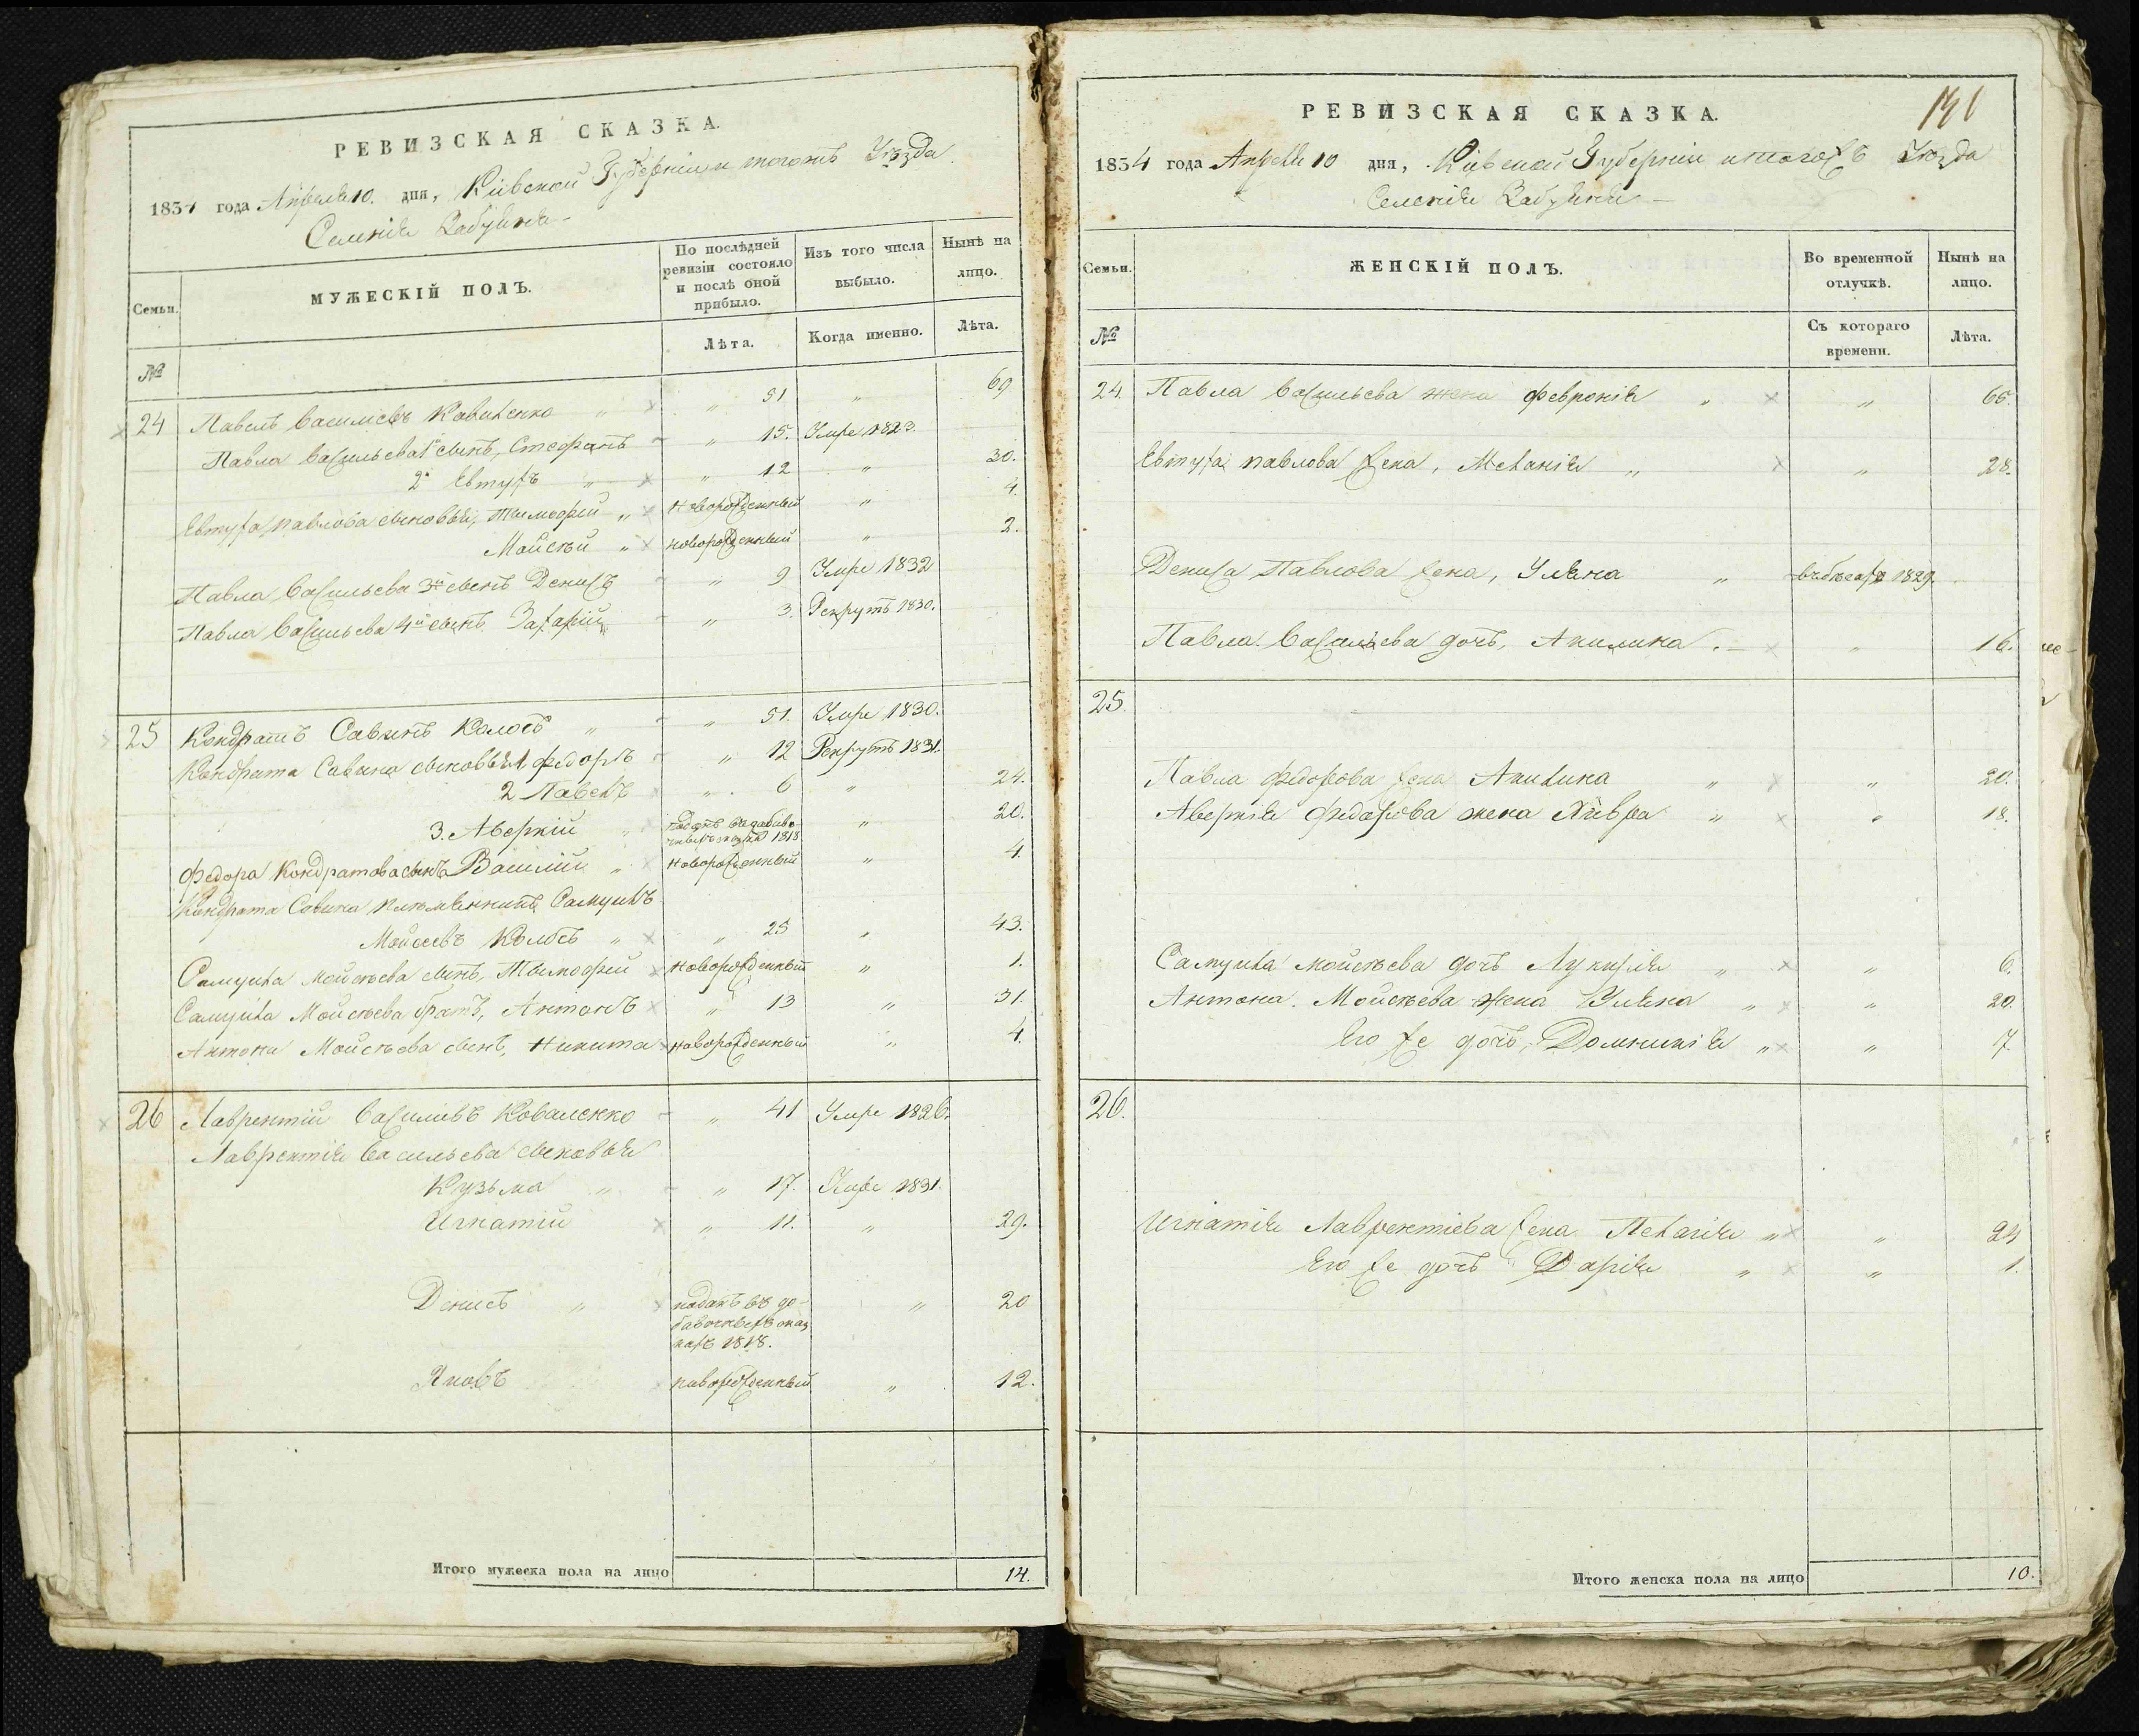 РЕВИЗСКАЯ СКАЗКА.
1834 года Апреля 10. дня, Кіевской Губерніи и тогожъ Уѣзда
Селенія
Семьи.
МУЖЕСКІЙ ПОЛЪ.
По послѣдней ревизіи состояло и послѣ оной прибыло.
Изъ того числа выбыло.
Нынѣ на лицо.
№
Лѣта.
Когда именно.
Лѣта.
24 Павелъ Василіевъ Коваленко " " 51 " 69
Павла Васильева 1й сынъ, Стефанъ " 15. Умре 1823.
2й Евтухъ " " 12 " 30.
Евтуха Павлова сыновья, Тимофей " новорожденный " 4.
Мойсей " новорожденный " 2.
Павла Васильева 3й сынъ Денисъ " 9 Умре 1832
Павла Васильева 4й сынъ Захарій " 3. Рекрутъ 1830.
25 Кондратъ Савинъ Колосъ " " 51. Умре 1830.
Кондрата Савина сыновья 1 Федоръ " 12 Рекрутъ 1831.
2 Павелъ " 6 " 24.
3. Аверкій " поданъ въ добавочныхъ сказках 1818 " 20.
Федора Кондратова сынъ Василій " новорожденный " 4.
Кондрата Савина племянникъ Самуилъ
Мойсеевъ Колосъ " " 25 " 43.
Самуила Мойсеева сынъ, Тимофей новорожденный " 1.
Самуила Мойсеева братъ, Антонъ " 13 " 31.
Антона Мойсеева сынъ, Никита новорожденный " 4.
26 Лаврентій Василіевъ Коваленко " 41 Умре 1826.
Лаврентія Васильева сыновья
Кузьма " " 17. Умре 1831.
Игнатій " 11. " 29.
Денисъ " поданъ въ до- " 20
бавочныхъ сказ
кахъ 1818.
Яковъ новорожденный " 12.
Итого мужеска пола на лицо 14.
РЕВИЗСКАЯ СКАЗКА.
1834 года Апреля 10 дня, Кіевской Губерніи и тогожъ Уѣзда
Селенія
Семьи.
ЖЕНСКІЙ ПОЛЪ.
Во временной отлучкѣ.
Нынѣ на лицо.
№
Съ котораго времени.
Лѣта.
24. Павла Васильева жена Февронія " " 65.
Евтуха Павлова жена, Меланія " " 28.
Дениса Павлова жена, Уляна " въ бегахъ 1829.
Павла Васильева дочь, Акилина " 16.
25.
Павла Федорова жена Акилина " " 20.
Аверкія Федорова жена " " 18.
Самуила Мойсеева дочь Лукирія " " 6.
Антона Мойсеева жена Уляна " " 20.
Его же дочь, Домникія " " 7.
26.
Игнатія Лаврентіева жена Пелагія " " 24
Его же дочь Дарія " " 1.
Итого женска пола на лицо 10.